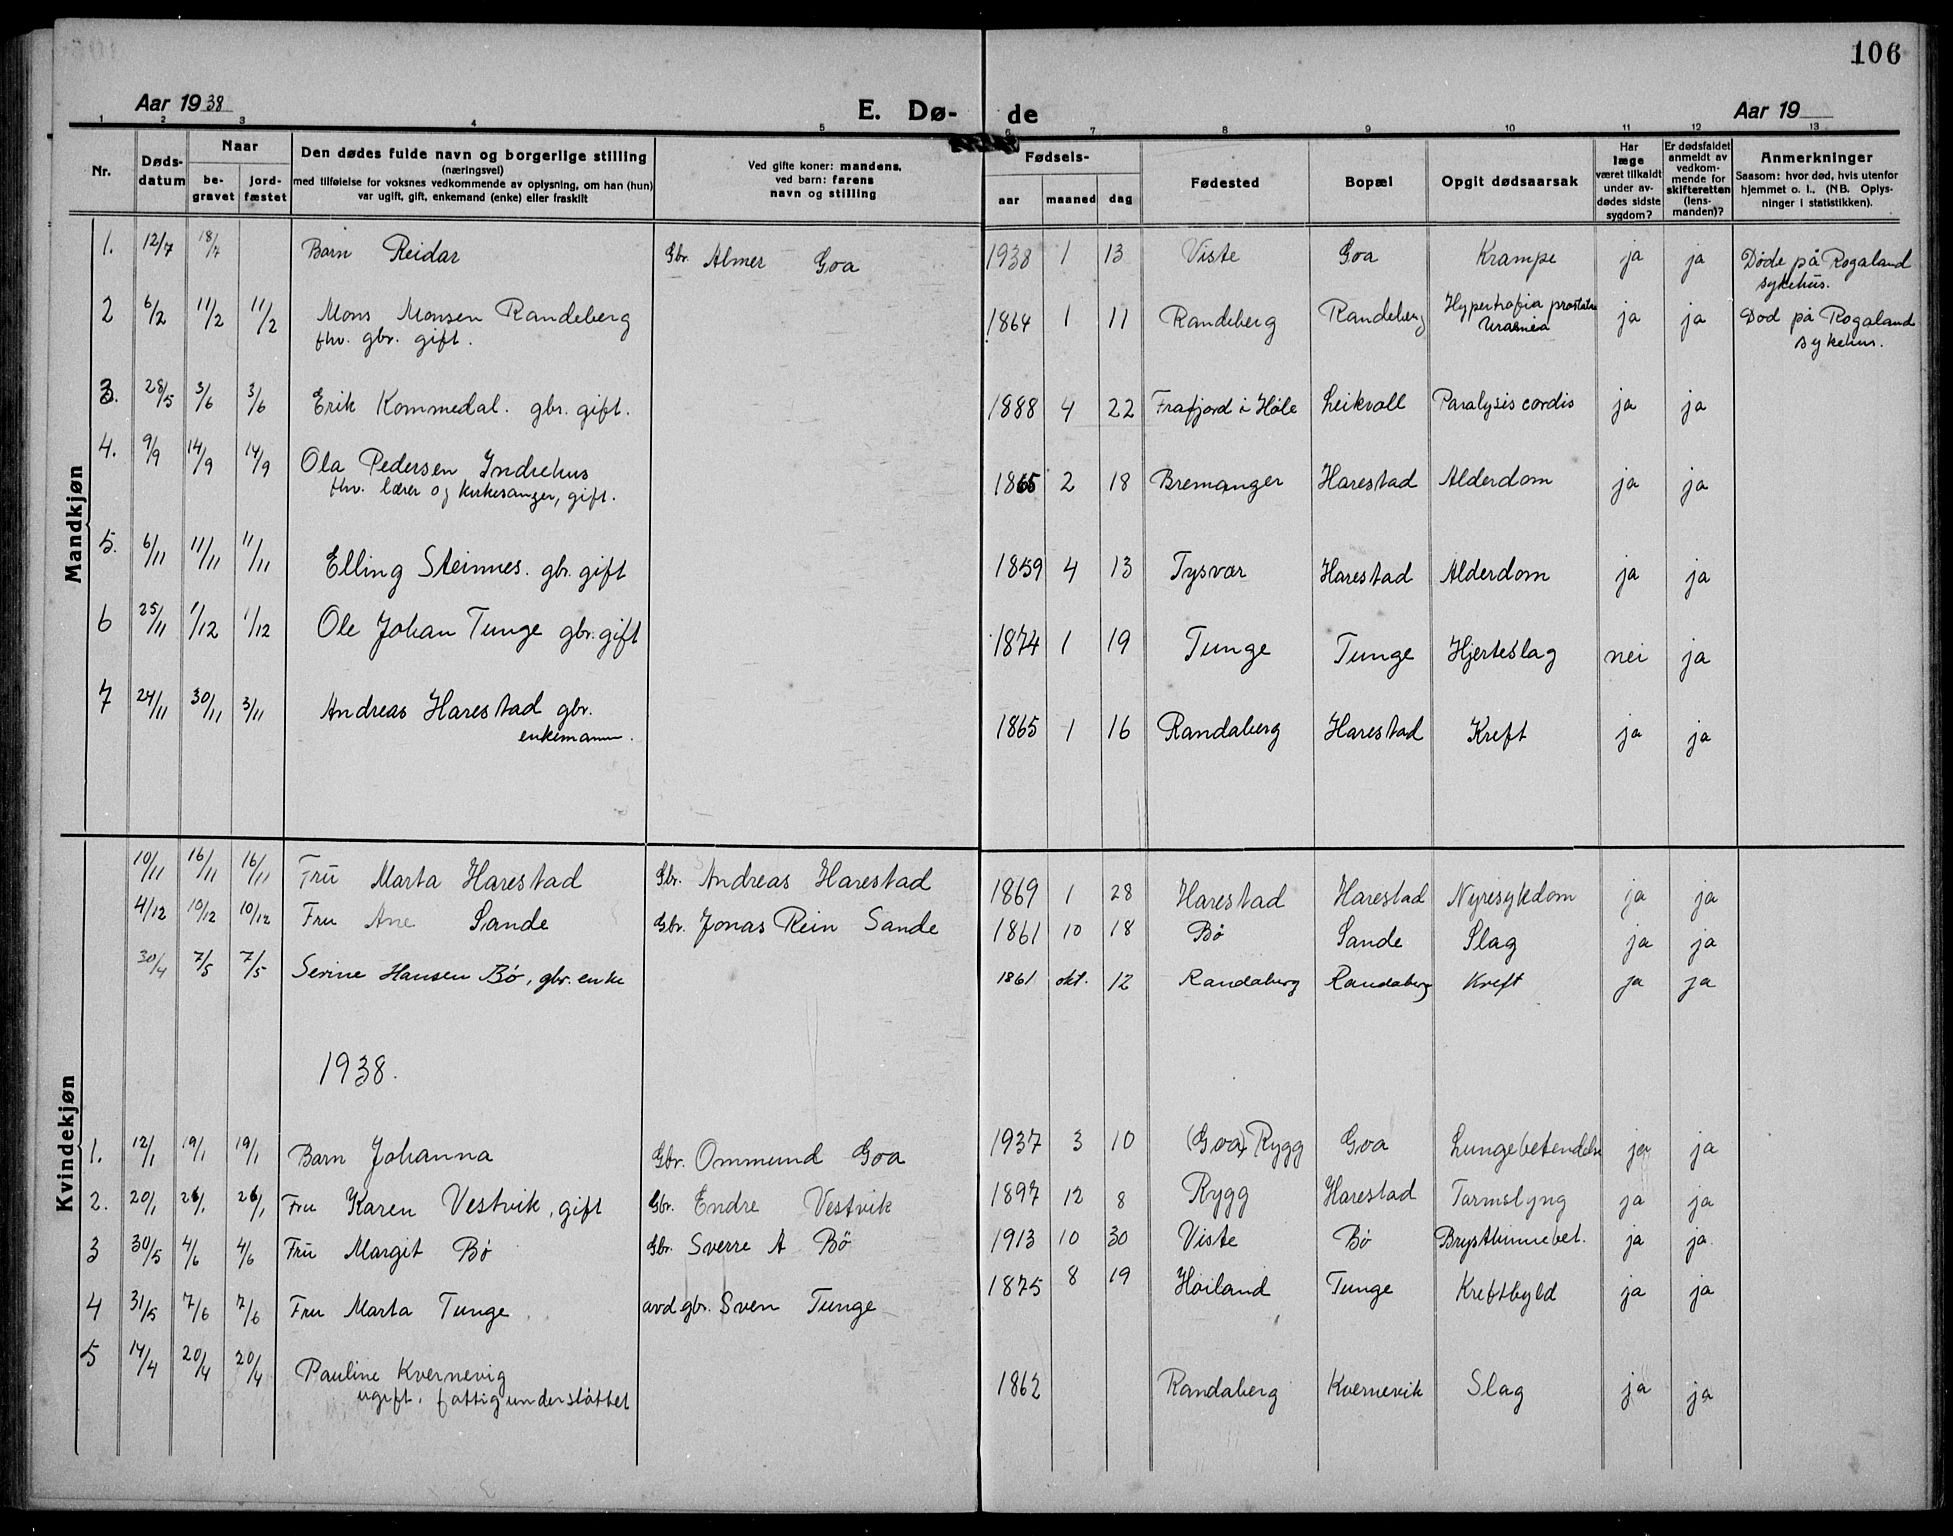 106
Aar 1938 E. Dø- de Aar 19
1 2 3 4 5 6 7 8 9 10 11 12 13
Nr. Døds-datum Naar be-gravet jord-fæstet Den dødes fulde navn og borgerlige stilling (næringsvei) med tilføielse for voksnes vedkommende av oplysning, om han (hun) var ugift, gift, enkemand (enke) eller fraskilt Ved gifte koner: mandens, ved barn: farens navn og stilling Fødsels- aar maaned dag Fødested Bopæl Opgit dødsaarsak Har læge været tilkaldt under av-dødes sidste sygdom? Er dødsfaldet anmeldt av vedkom-mende for skifteretten (lens-manden)? Anmerkninger Saasom: hvor død, hvis utenfor hjemmet o. l., (NB. Oplys-ninger i statistikken).
Mandkjøn
1. 12/7 18/7 Barn Reidar Gbr. Almer Goa 1938 1 13 Viste Goa Krampe ja ja Døde på Rogaland
sykehus.
2 6/2 11/2 11/2 Mons Monsen Randeberg 1864 1 11 Randeberg Randeberg Hypertrofia prostatae ja ja Død på Rogaland
fhv. gbr. gift. Uraemia sykehus.
3. 28/5 3/6 3/6 Erik Kommedal. gbr. gift. 1888 4 22 Frafjord i Høle Leikvoll Paralysis cordis ja ja
4. 9/9 14/9 14/9 Ola Pedersen Indrehus 1865 2 18 Bremanger Harestad Alderdom ja ja
fhv. lærer og kirkesanger, gift.
5. 6/11 11/11 11/11 Elling Steinnes. gbr. gift 1859 4 13 Tysvær Harestad Alderdom ja ja
6 25/11 1/12 1/12 Ole Johan Tunge gbr. gift 1874 1 19 Tunge Tunge Hjerteslag nei ja
7 24/11 30/11 3/11 Andreas Harestad gbr. 1865 1 16 Randaberg Harestad Kreft ja ja
enkemann.
Kvindekjøn
10/11 16/11 16/11 Fru Marta Harestad Gbr. Andreas Harestad 1869 1 28 Harestad Harestad Nyresykdom ja ja
4/12 10/12 10/12 Fru Ane Sande Gbr. Jonas Rein Sande 1861 10 18 Bø Sande Slag ja ja
30/4 7/5 7/5 Serine Hansen Bø, gbr. enke 1861 okt. 12 Randaberg Randaberg Kreft ja ja
1938.
1. 12/1 19/1 19/1 Barn Johanna Gbr. Ommund Goa 1937 3 10 (Goa) Rygg Goa Lungebetendelse ja ja
2. 20/1 26/1 26/1 Fru Karen Vestvik, gift Gbr. Endre Vestvik 1897 12 8 Rygg Harestad Tarmslyng ja ja
3 30/5 4/6 4/6 Fru Margit Bø Gbr. Sverre A Bø 1913 10 30 Viste Bø Brysthinnebet. ja ja.
4 31/5 7/6 7/6 Fru Marta Tunge avd gbr. Sven Tunge 1875 8 19 Høiland Tunge Kreftbyld ja ja
5 14/4 20/4 20/4 Pauline Kvernevig 1862 Randaberg Kvernevik Slag ja ja
ugift, fattigunderstøttet